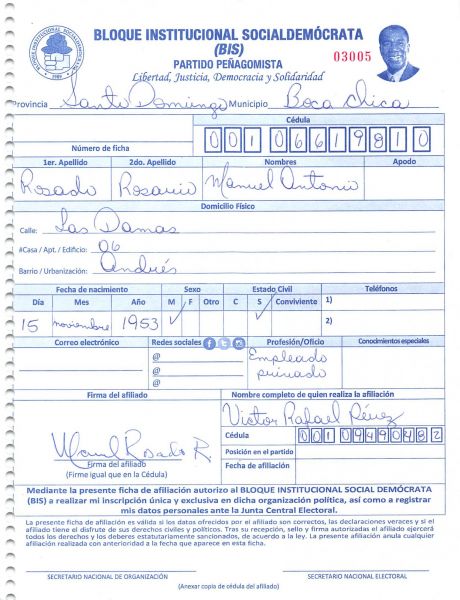 BLOQUE INSTITUCIONAL SOCIALDEMÓCRATA
(BIS)
PARTIDO PEÑAGOMISTA
03005
Libertad, Justicia, Democracia y Solidaridad
Provincia Santo Domingo Municipio Boca Chica
Cédula
Número de ficha
1er. Apellido 2do. Apellido Nombres Apodo
Rosado Rosario Manuel Antonio
Domicilio Físico
Calle: Las Damas
#Casa / Apt. / Edificio: 06
Barrio / Urbanización: Andrés
Fecha de nacimiento Sexo Estado Civil Teléfonos
Día Mes Año M F Otro C S Conviviente 1)
15 noviembre 1953 2)
Correo electrónico Redes sociales Profesión/Oficio Conocimientos especiales
@ Empleado
@ privado
@
Firma del afiliado Nombre completo de quien realiza la afiliación
Victor Rafael Pérez
Cédula 00109490482
Manuel Rosado R.
Posición en el partido
Firma del afiliado
(Firme igual que en la Cédula)
Fecha de afiliación
Mediante la presente ficha de afiliación autorizo al BLOQUE INSTITUCIONAL SOCIAL DEMÓCRATA
(BIS) a realizar mi inscripción única y exclusiva en dicha organización política, así como a registrar
mis datos personales ante la Junta Central Electoral.
La presente ficha de afiliación es válida si los datos ofrecidos por el afiliado son correctos, las declaraciones veraces y si el
afiliado tiene el disfrute de sus derechos civiles y políticos. Tras su recepción, sello y firma autorizadas el afiliado ejercerá
todos los derechos y los deberes estatutariamente sancionados, de acuerdo a la ley. La presente afiliación anula cualquier
afiliación realizada con anterioridad a la fecha que aparece en esta ficha.
SECRETARIO NACIONAL DE ORGANIZACIÓN SECRETARIO NACIONAL ELECTORAL
(Anexar copia de cédula del afiliado)